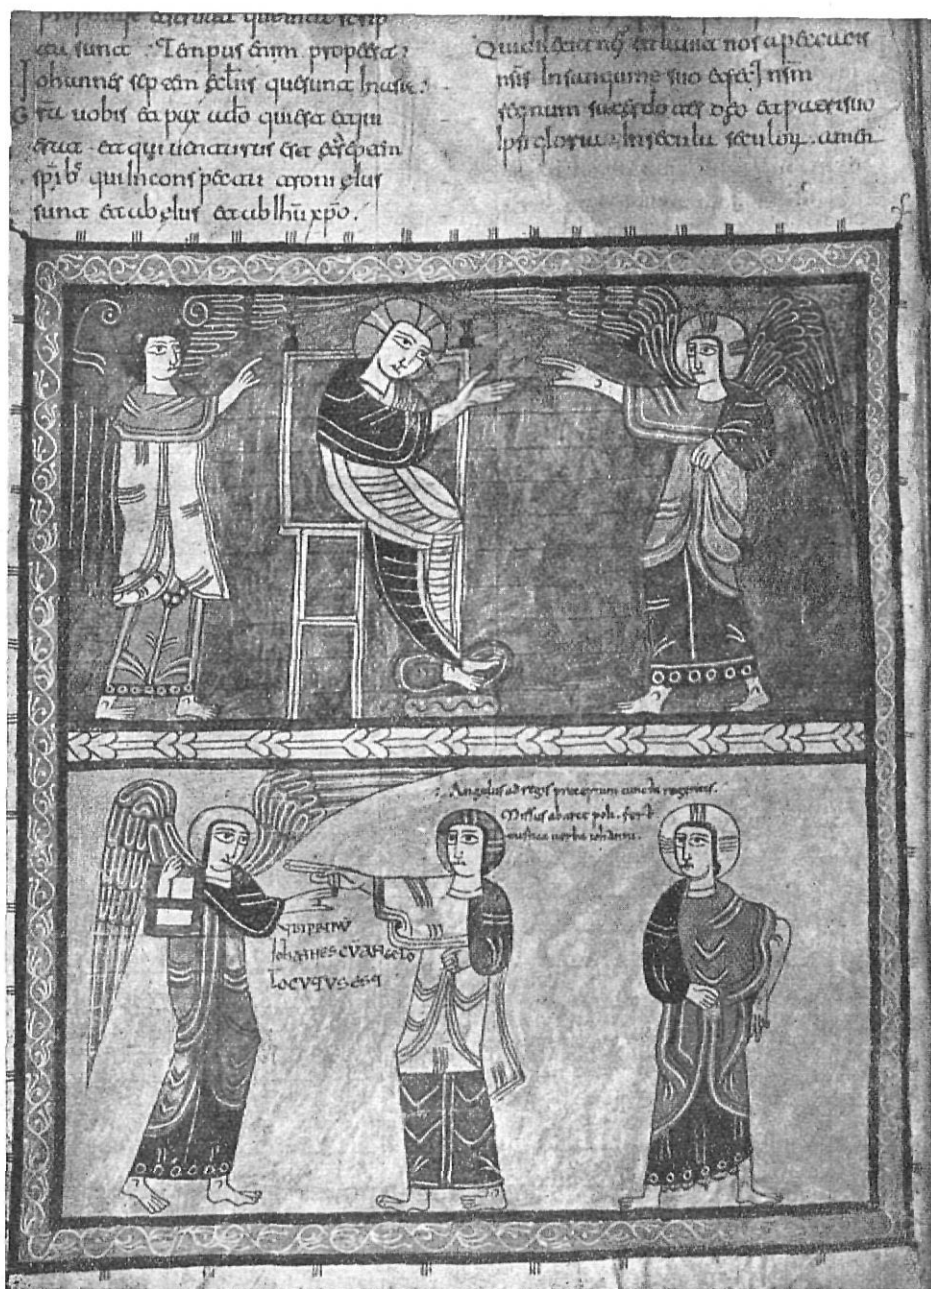 ta sunt · Tempus enim prope est :
Iohannes septem ecl̄iis que sunt In asia :
Gr̄a uobis et pax ab eo qui est et qui
erat · et qui uenturus est et septem
sp̄ib; qui In conspectu troni eius
sunt et ab eius et ab ih̄u xp̄o .
nos et lauit nos a peccatis
nsīs In sanguine suo et fecit
regnum sacerdotes deo et patri suo
Ipsi gloria · In secula seculor̄ · amen
: Angelus ad regis preceptum cuncta regentis.
Missus ab arce poli · fert
mistica uerba iohanni.
IohANNES CVM ANGELO
LOCVTVS EST